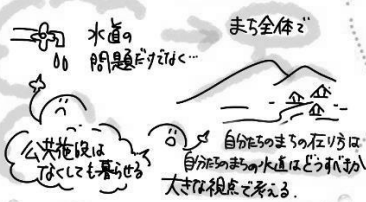 水道の
問題だけでなく…
まち全体で
公共施設は
なくしても暮らせる
自分たちのまちの在り方は
自分たちのまちの水道はどうすべきか
大きな視点で考える.